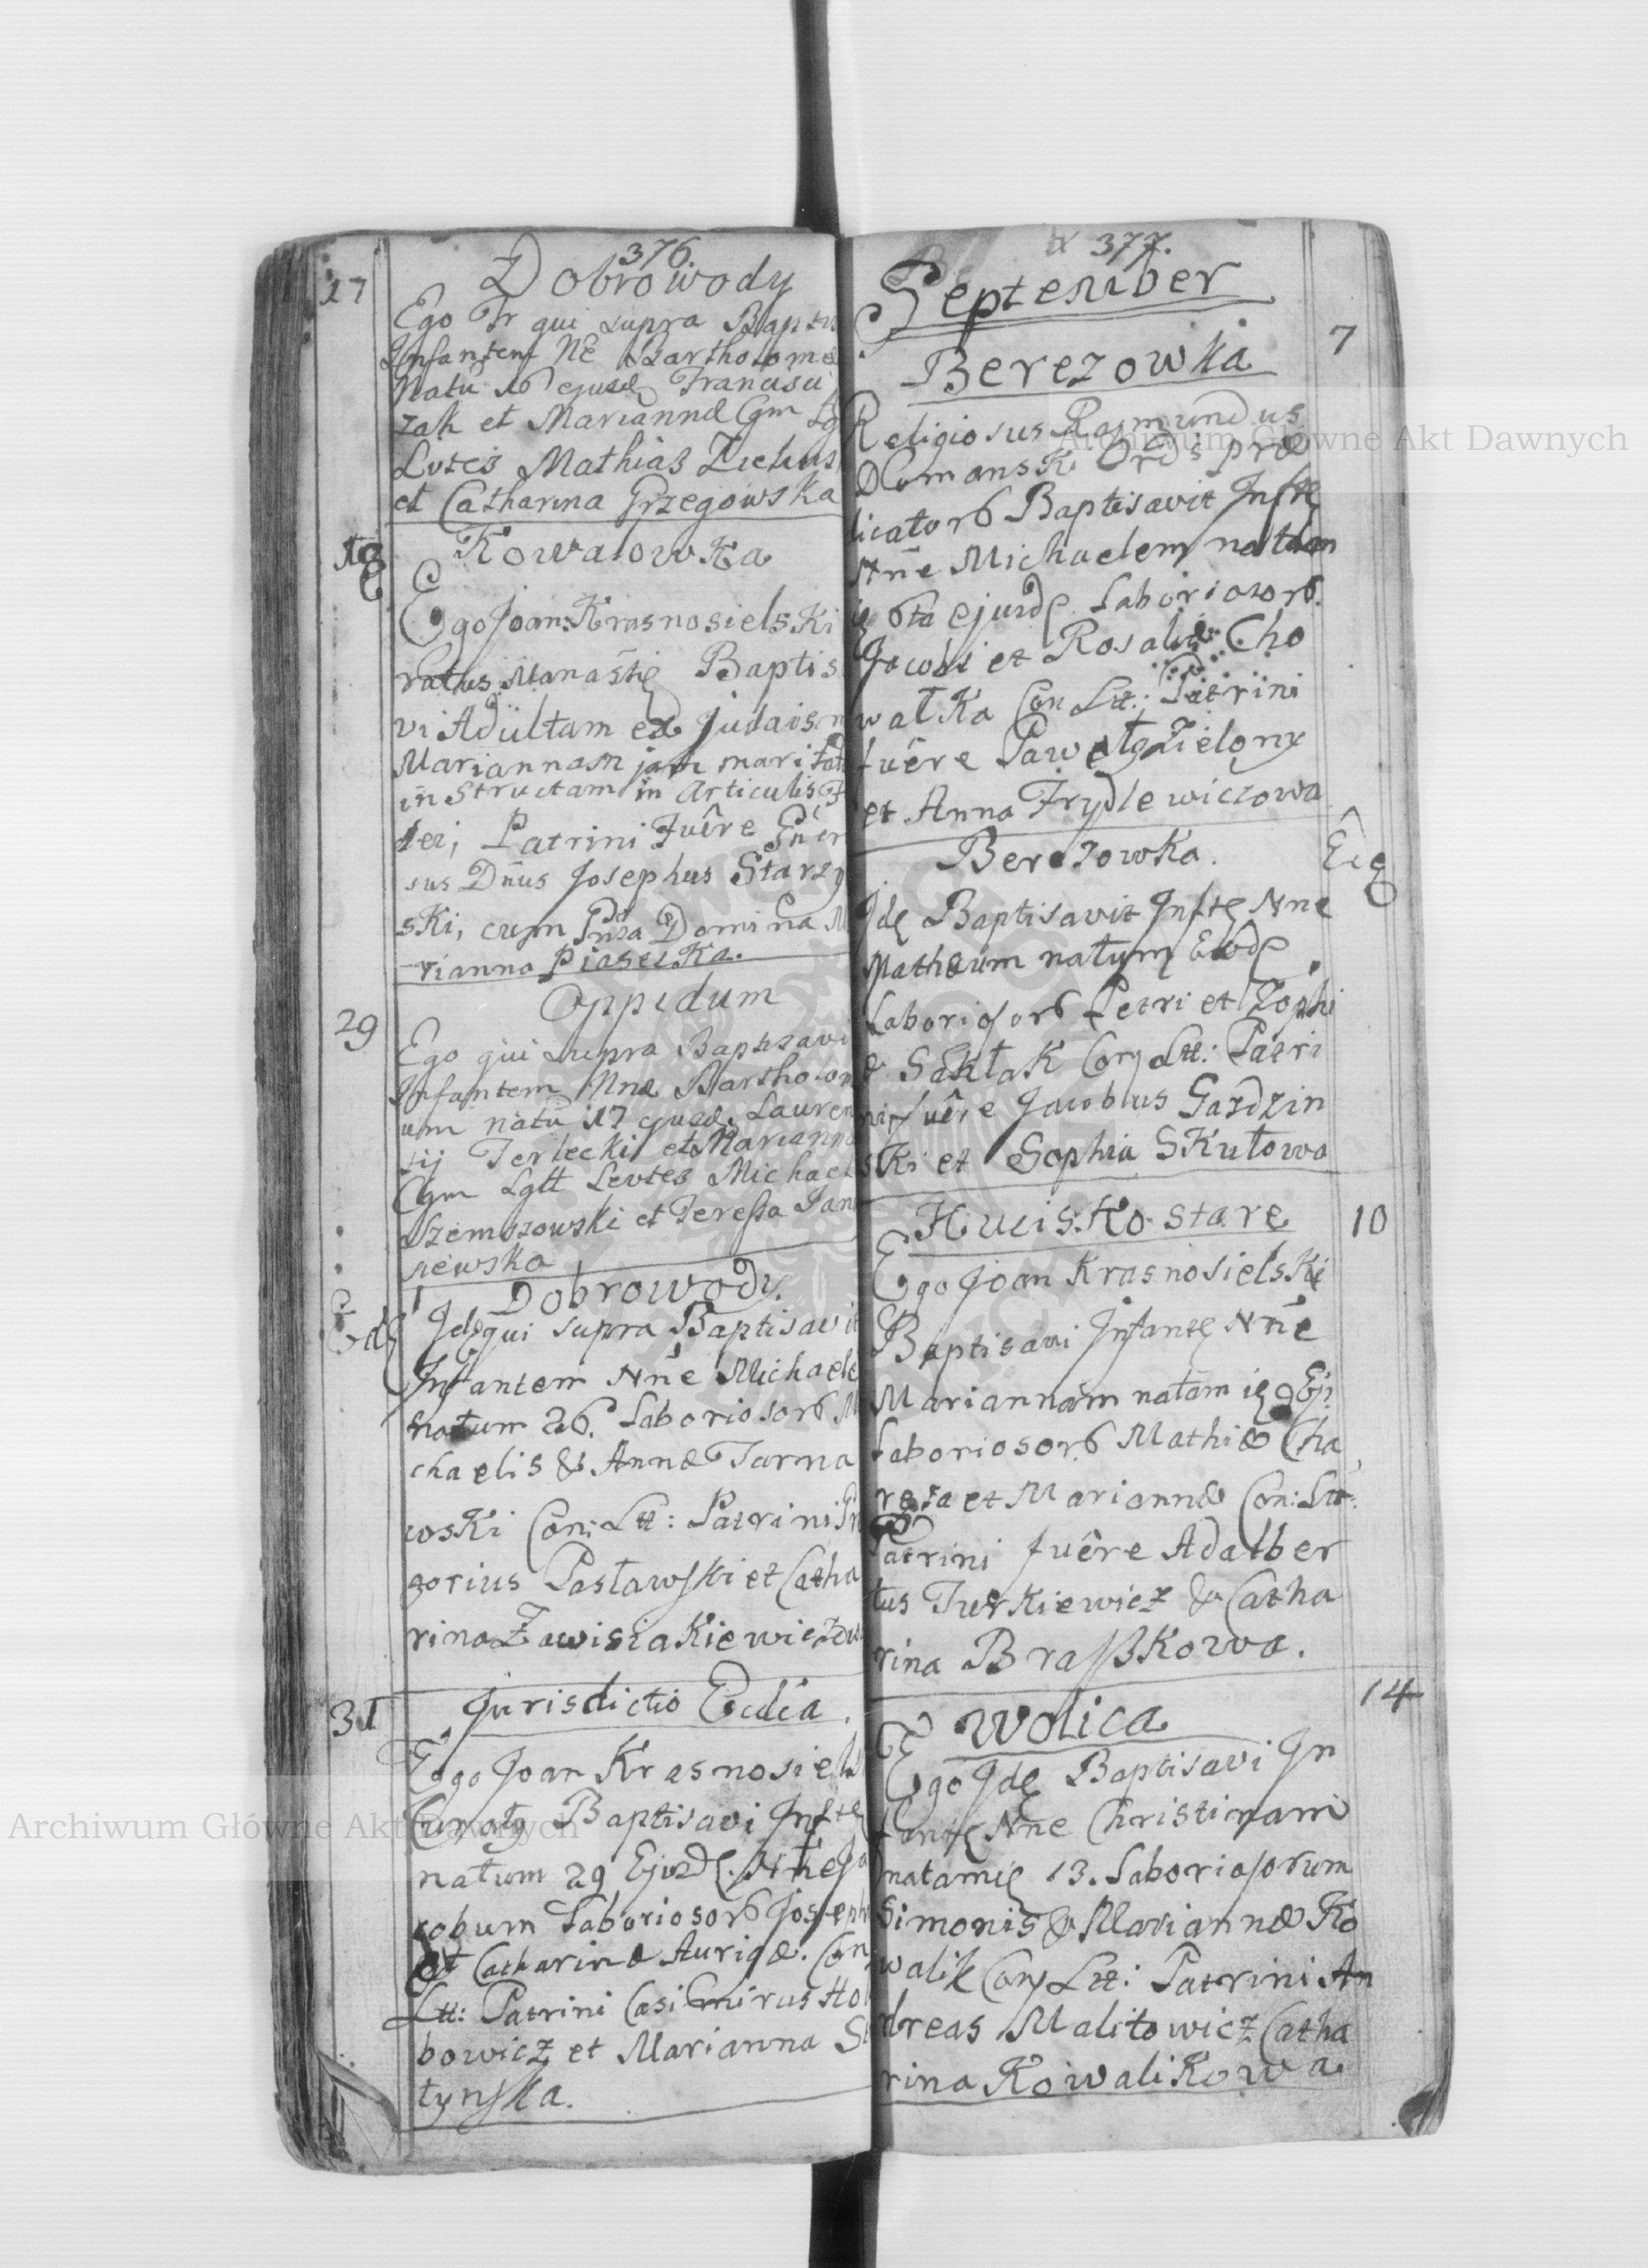 376.
Dobrowody
17
Ego Fr qui supra Baptis
Infantem NE Bartholome
Natū 16 ejusd Francisci
zak et Mariannæ Cgm Lg
Lvtes Mathias Zielins
et Catharina Grzegowska
18
Kowalowka
Ego Joan: Krasnosielski
ratus Monastę Baptis
vi Adultam ex Judaism
Mariannam jam maritat
in Structam in Articulis F
dei, Patrini Fuêre Gner
sus Dñus Josephus Starzy
ski, cum Gnsa Domina M
rianna Piasecka.
29
Oppidum
Ego qui supra Baptisavi
Infantem Nnæ Bartholom
um natū 17 ejusd. Lauren
tij Terlecki et Marianna
Cgm Lgtt Levtes Michael
Szemszowski et Teressa Jan
siewska
Dobrowody.
Jdę qui supra Baptisavit
Infantem Nnē Michaele
natum 26. Laboriosorb M
chaelis & Annæ Tarna
wski Con: Ltt: Patrini Gr
gorius Pastawski et Catha
rina Zawisiakiewiczow
31
Jurisdictio Ecclia.
Ego Joan Krasnosiels
Curatg Baptisavi Inftę
natum 29 Ejusdę. Nne Ja
cobum Laboriosorb Joseph
et Catharinæ Aurigæ. Con
Ltt: Patrini Casimirus Hol
bowicz et Marianna S
tynska.
377.
September
Berezowka
7
Religiosus Rajmundus
Domanski Ords præ
dicatorb Baptisavit Inftę
Nne Michaelem natum
ię 6ta ejusdę Laboriosorb.
Jacobi et Rosaliæ Cho
wałka Con Ltt: Patrini
fuêre Pawełg Zielony
et Anna Frydlewiczowa
Berezowka.
Jdę Baptisavit Inftę Nne
Mathæum natumę Eodę
Laboriosorb Petri et Zophi
æ Sakłak Conj Ltt: Patri
ni fuêre Jacobus Gardzin
ski et Sophia Skutowa
Hucisko stare
10
Ego Joan Krasnosielski
Baptisavi Infantę Nnē
Mariannam natam ię 9 Ej:
Laboriosorb Mathiæ Cha
reza et Mariannæ Con: Ltt:
Patrini fuêre Adalber
tus Turkiewicz & Catha
rina Braßkowa.
14
Wolica
Ego Jdę Baptisavi In
fantę Nne Christinam
natamię 13. Laboriosorum
Simonis & Mariannæ Ko
walik Conj Ltt: Patrini An
dreas Malitowicz Catha
rina Kowalikowa
Archiwum Główne Akt Dawnych
Archiwum Główne Akt Dawnych